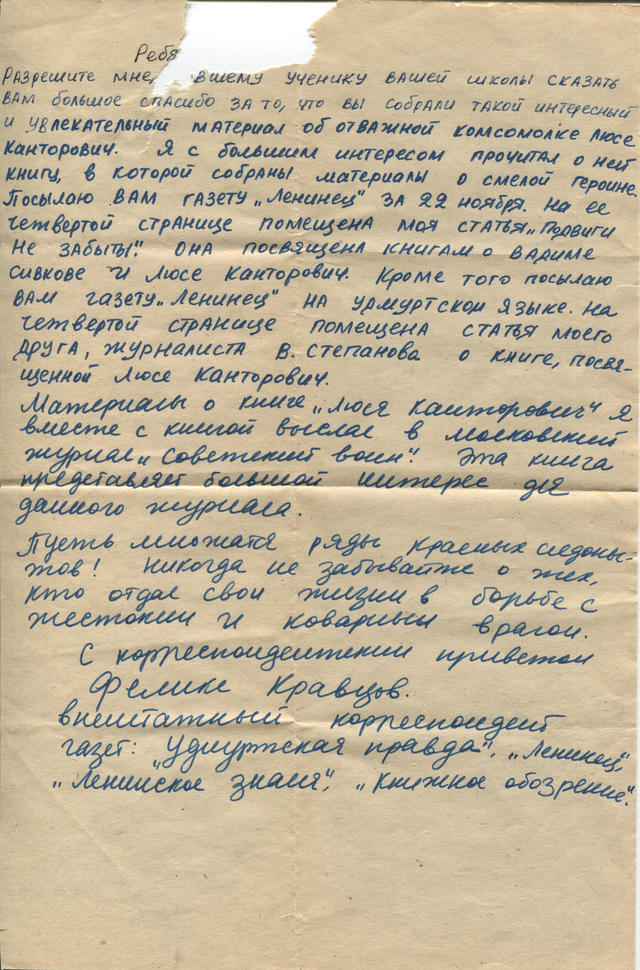 Ребя
Разрешите мне, вшему ученику вашей школы сказать
вам большое спасибо за то, что вы собрали такой интересный
и увлекательный материал об отважной комсомолке Люсе
Канторович. Я с большим интересом прочитал о ней
книгу, в которой собраны материалы о смелой героине.
Посылаю вам газету „Ленинец" за 22 ноября. На ее
четвертой странице помещена моя статья „Подвиги
не забыты". Она посвящена книгам о Вадиме
Сивкове и Люсе Канторович. Кроме того посылаю
вам газету „Ленинец" на удмуртском языке. На
четвертой странице помещена статья моего
друга, журналиста В. Степанова о книге, посвя-
щенной Люсе Канторович.
Материалы о книге „Люся Канторович" я
вместе с книгой выслал в московский
журнал „Советский воин". Эта книга
представляет большой интерес для
данного журнала.
Пусть множатся ряды красных следопы-
тов! Никогда не забывайте о тех,
кто отдал свои жизни в борьбе с
жестоким и коварным врагом.
С корреспондентским приветом
Феликс Кравцов.
внештатный корреспондент
газет: „Удмуртская правда", „Ленинец",
„Ленинское знамя", „Книжное обозрение".